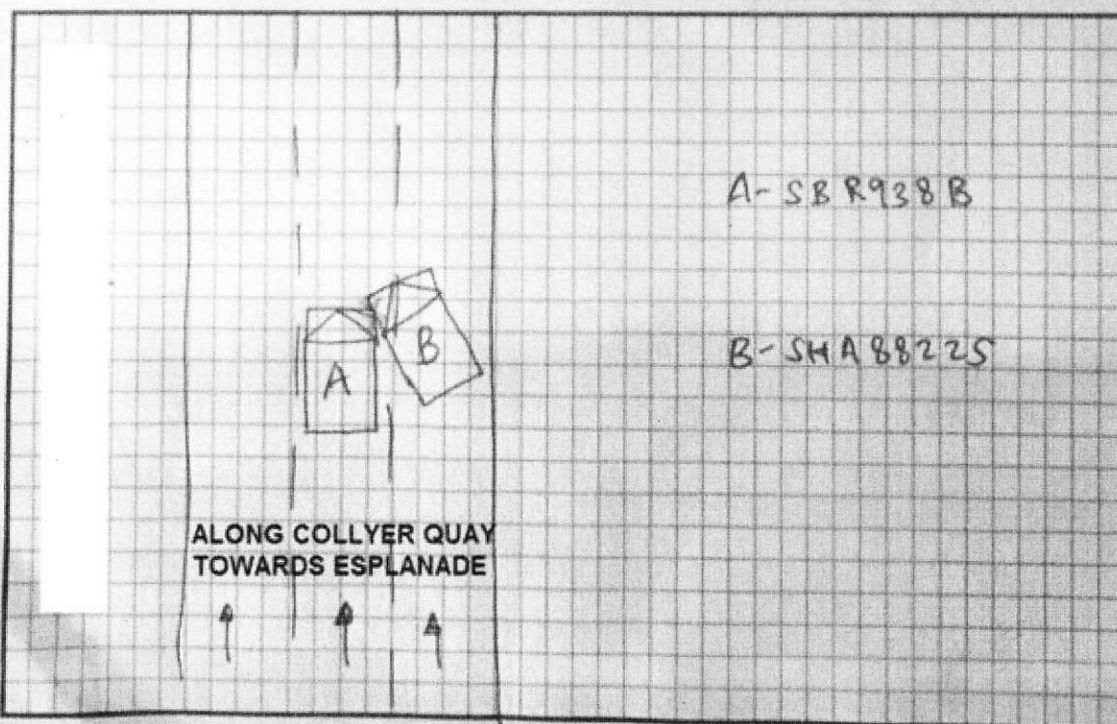 A- SBR938B
A
B
B- SHA8822S
ALONG COLLYER QUAY
TOWARDS ESPLANADE